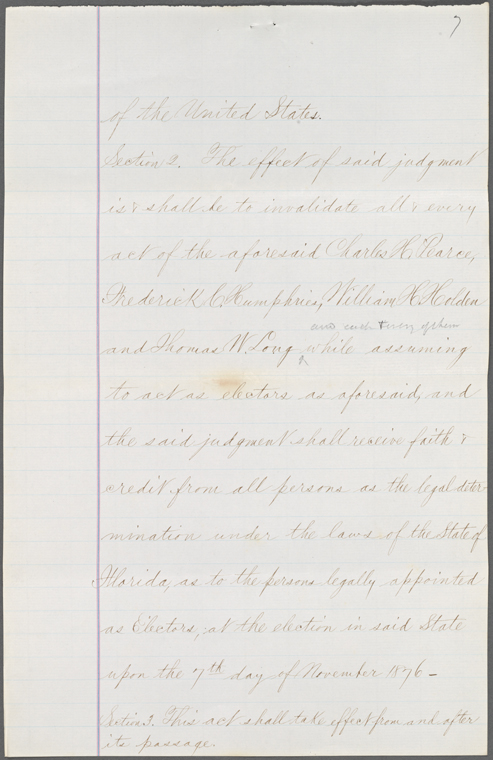 7
of the United States.
Section 2. The effect of said judgment
is & shall be to invalidate all & every
act of the aforesaid Charles H. Pearce,
Frederick C. Humphries, William H. Holden
and each & every of them
and Thomas W. Long ^ while assuming
to act as electors as aforesaid, and
the said judgment shall receive faith &
credit from all persons as the legal deter-
mination under the laws of the State of
Florida, as to the persons legally appointed
as Electors, at the election in said State
upon the 7th day of November 1876 -
Section 3. This act shall take effect from and after
its passage.